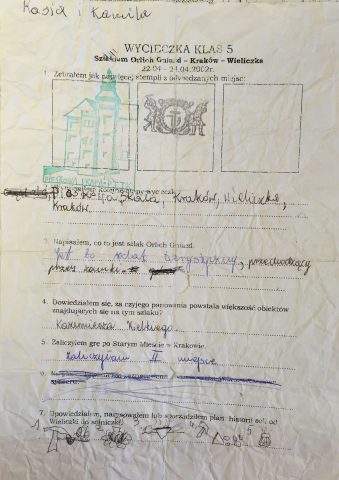 Kasia i Kamila
WYCIECZKA KLAS 5
Szlakiem Orlich Gniazd – Kraków – Wieliczka
22.04 – 24.04.2002r.
1. Zebrałem jak najwięcej stempli z odwiedzanych miejsc:
PIESKOWA SKAŁA
Pieskowa Skała, Kraków, Wieliczka,
Kraków.
3. Napisałem, co to jest szlak Orlich Gniazd.
Jest to szlak turystyczny, prowadzący
przez zamki
4. Dowiedziałem się, za czyjego panowania powstała większość obiektów
znajdujących się na tym szlaku?
Kazimierza Wielkiego.
5. Zaliczyłem grę po Starym Mieście w Krakowie
Zaliczyłam II miejsce
6.
7. Opowiedziałem, narysowałem lub sporządziłem plan historii soli, od
Wieliczki do solniczki